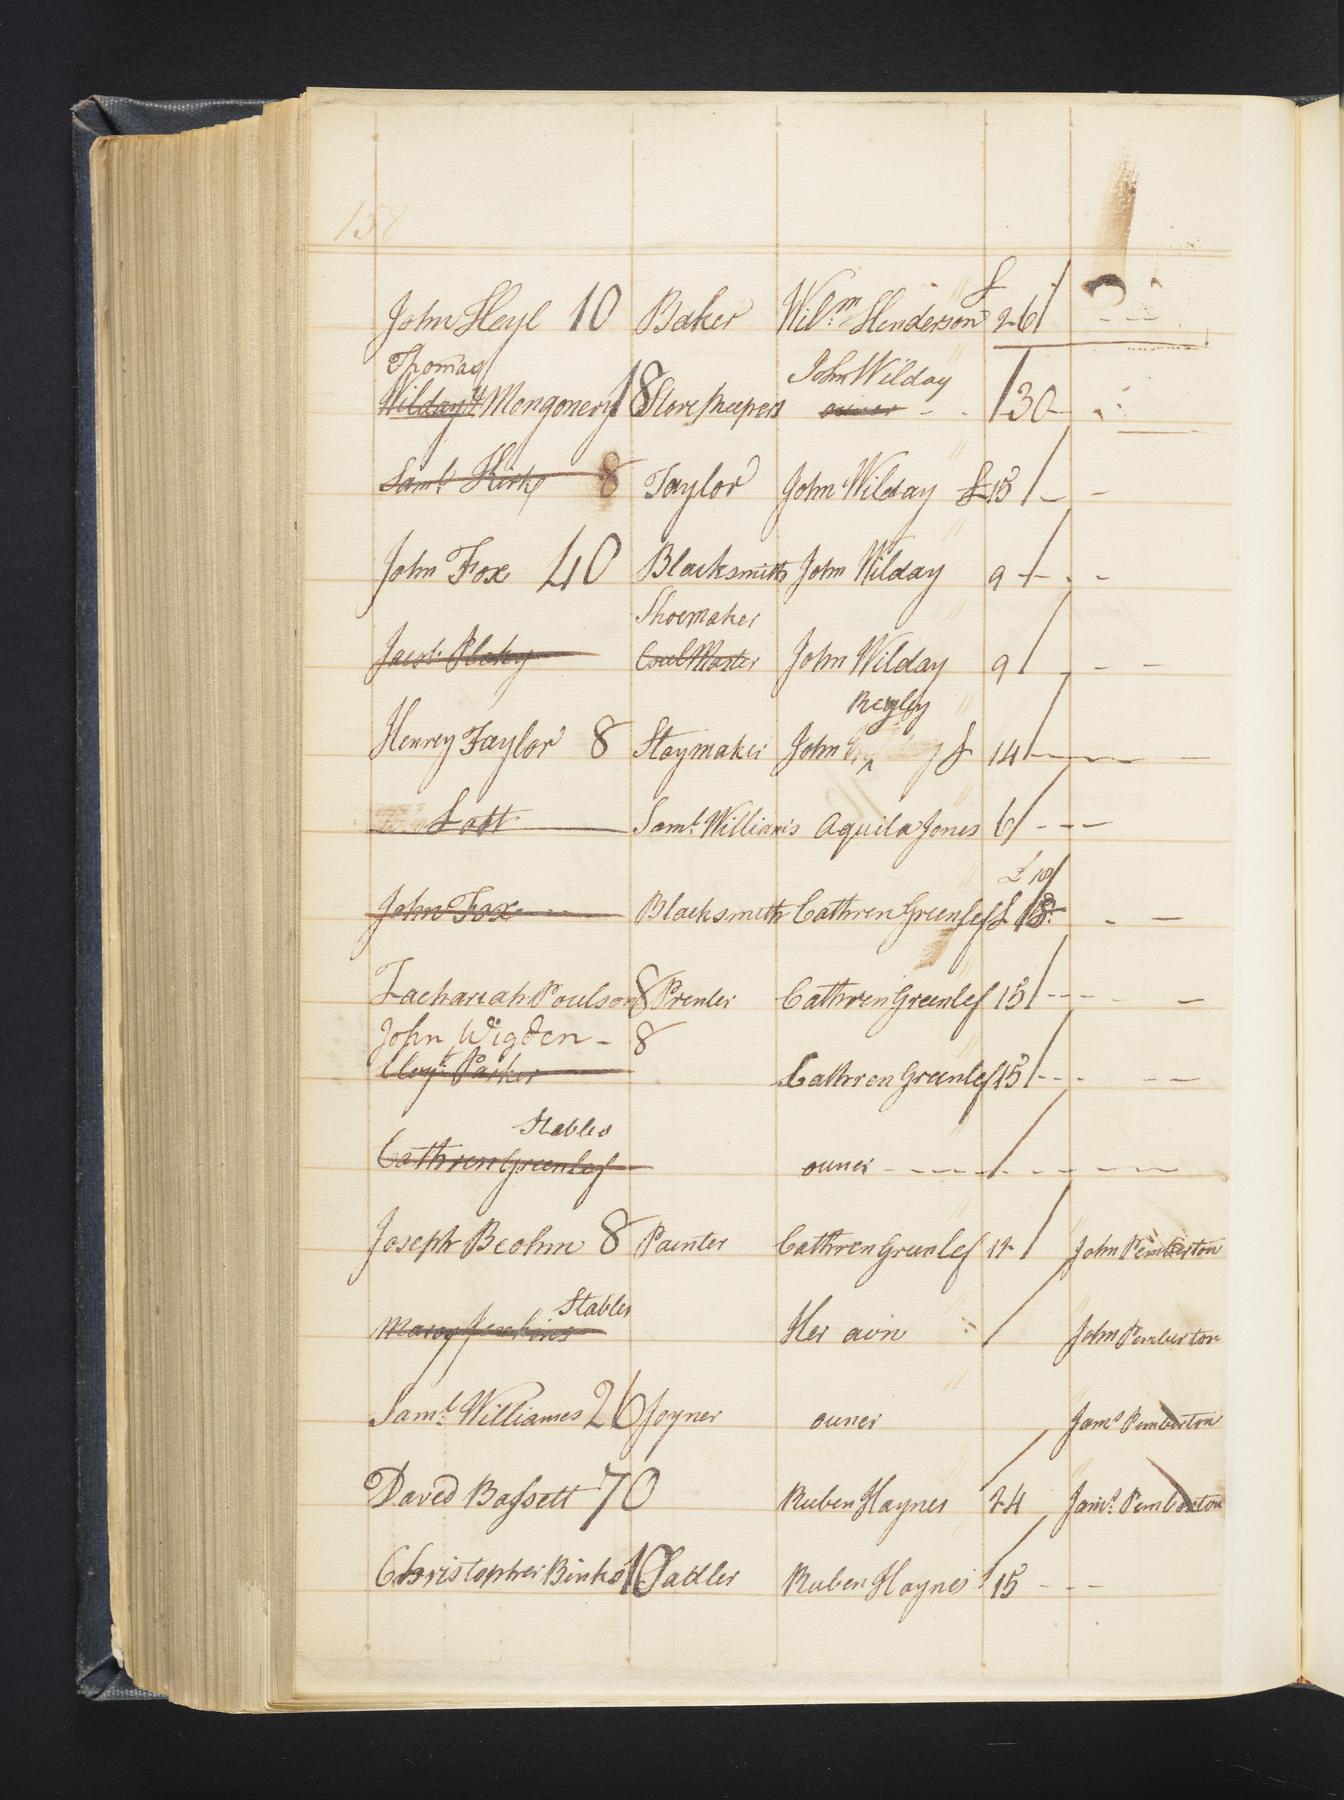 158
John Heyl 10 Baker Wilm Henderson £ 26/
Thomas John Wilday
Wilday & Mongonery 18 Store Keepers owner - - 130
Saml Kirk 8 Taylor John Wilday £ 15 / - -
John Fox 40 Blacksmith John Wilday 9 / - -
Shoemaker
Jacob John Wilday 9 / - -
Regley
Henrey Taylor 8 Staymaker John £ 14
Lott Saml Williams Aquila Jones 6 / - - -
£ 10/
John Fox Blacksmith Cathren Greenlef £ 18 - -
Zachariah Poulson 8 Prenter Cathren Greenlef 15 / - - -
John Wigden - 8
Parker Cathren Greenlef 15 / - - -
Stables
Cathren Greenlef owner - - - - / - - - -
Joseph Beohm 8 Painter Cathren Greenlef 14 / John Pemberton
Stables
Marcy Jenkins Her own / John Pemberton
Saml Williames 26 Joyner owner Jams Pemberton
David Bassett 70 Ruben Haynes 24 / Jams Pemberton
Christopher Binks 10 Sadler Ruben Haynes 15 / - - -